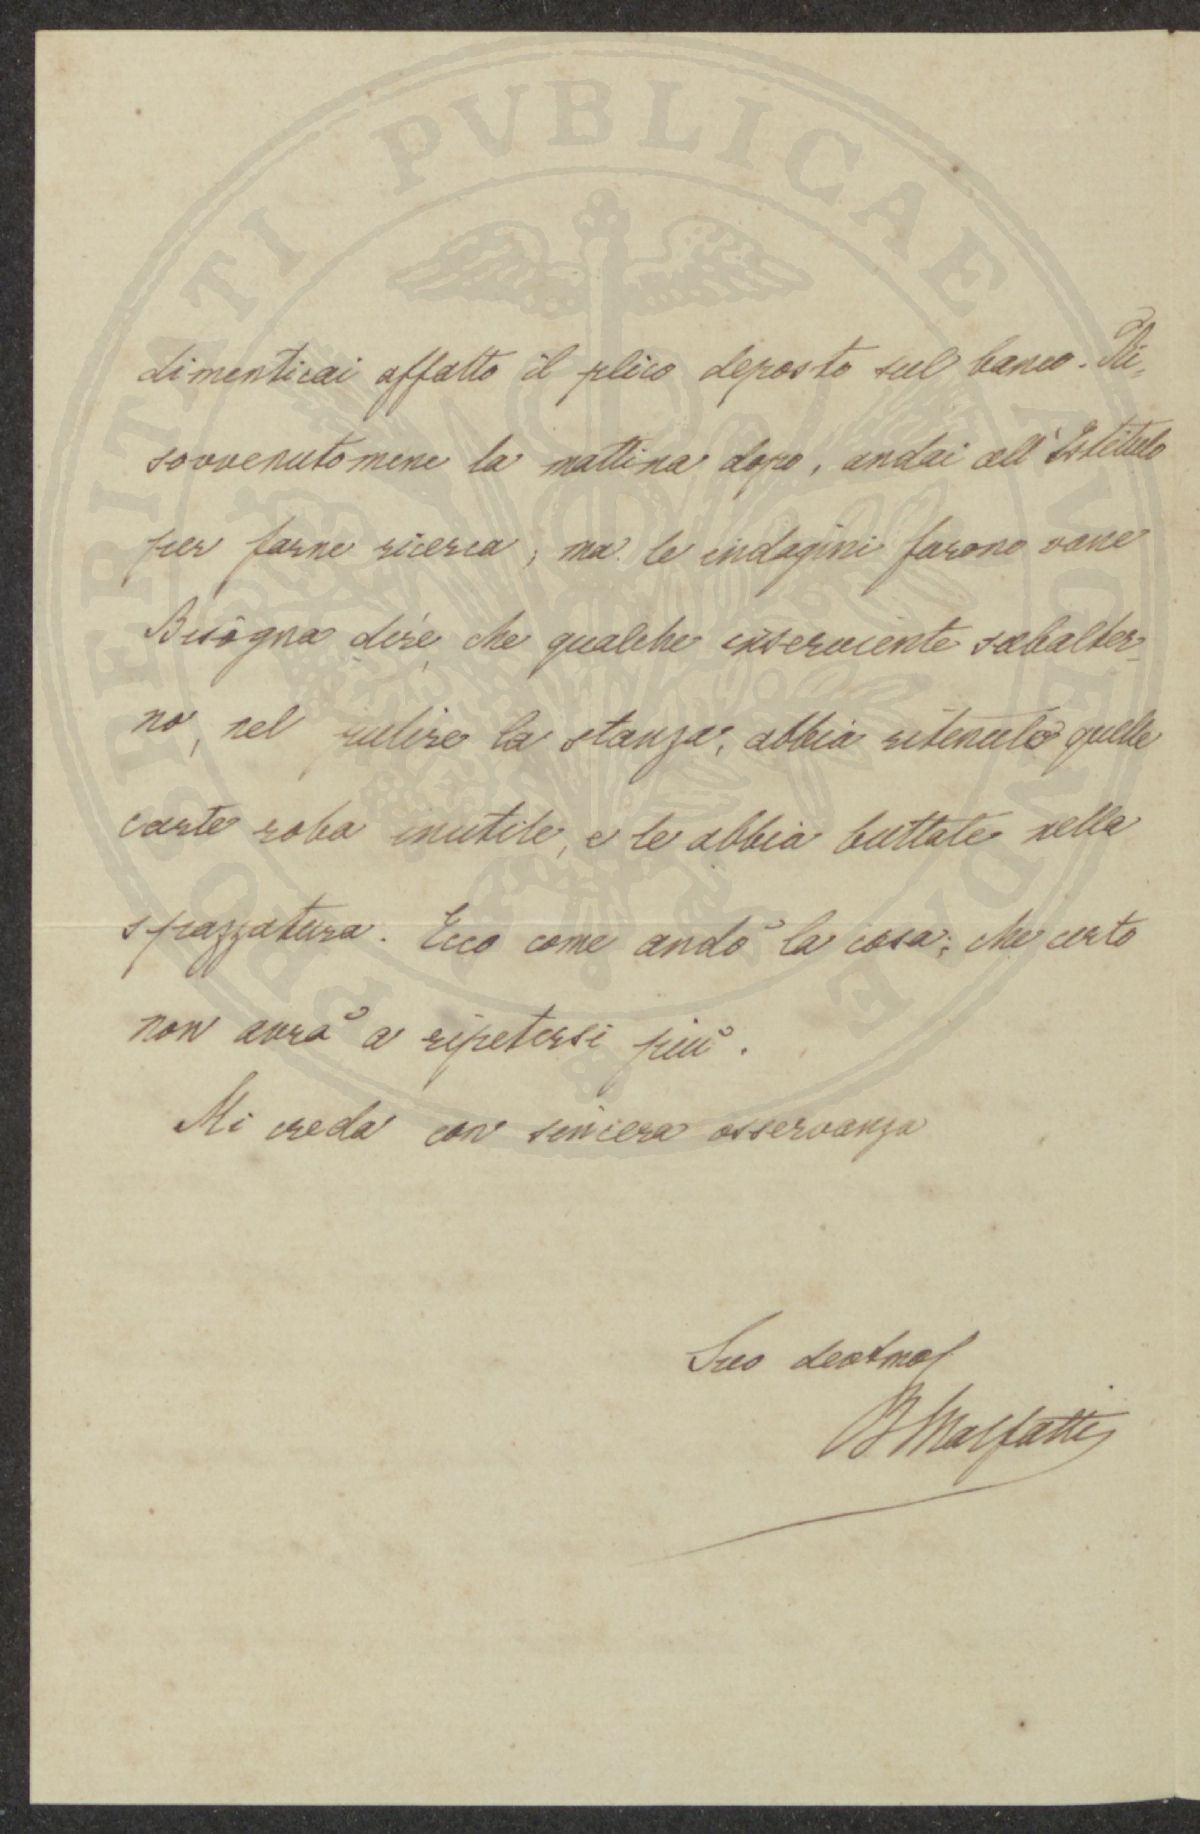 PROSPERITATI PVBLICAE AVGENDAE
dimenticai affatto il plico deposto sul banco. Ri=
sovvenutomene la mattina dopo, andai all'Istituto
per farne ricerca; ma le indagini furono vane
Bisogna dire che qualche inserviente subalter=
no, nel pulire la stanza, abbia ritenute quelle
carte roba inutile, e le abbia buttate nella
spazzatura. Ecco come andò la cosa; che certo
non avrà a ripetersi più.
Mi creda con sincera osservanza
Suo devotmo
B Malfatti